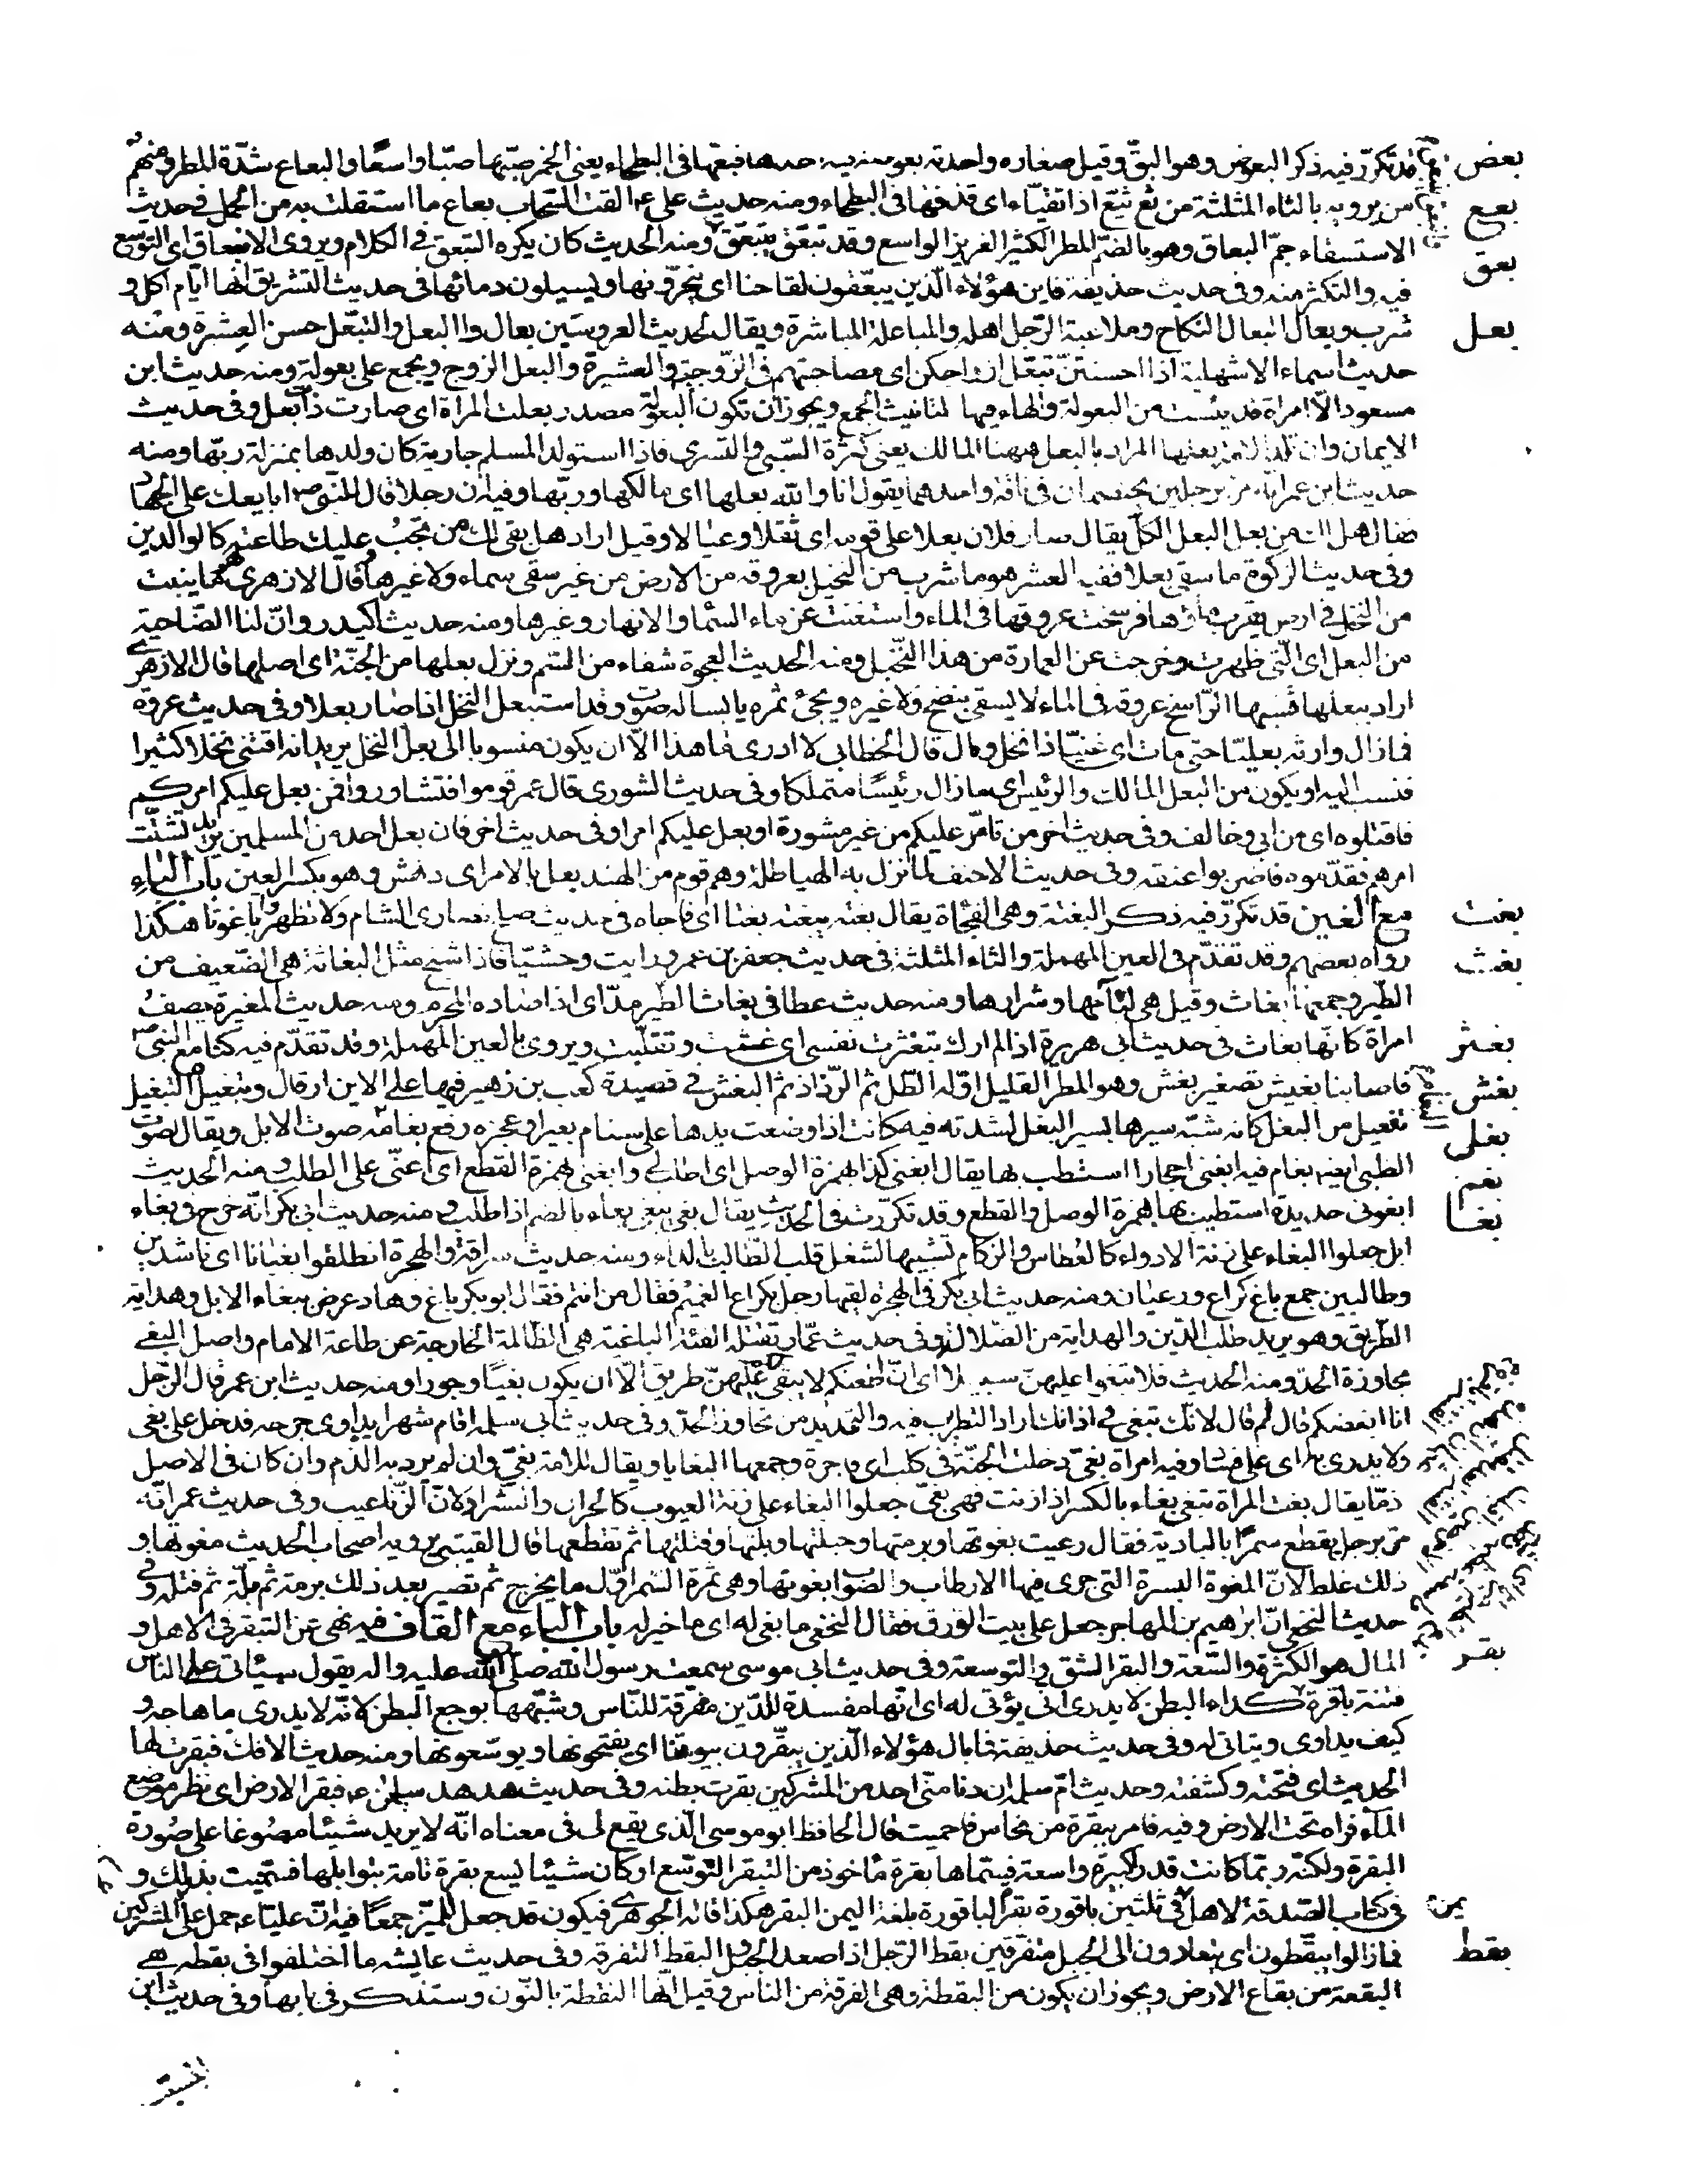 بعض قد تكرّر فيه ذكر البعوض وهو البقّ وقيل صغاره واحدته بعوضة فبعّها فى البطحاء يعنى الخمر صبّها صبّا واسعًا والبعاع شدّة المطر ومنهم
بعع من يرويه بالثاء المثلثة من ثع يثعّ اذا تقيّاء اى قذفها فى البطحاء ومنه حديث على عم القت السّحاب بعاع ما استقلت به من الحمل فى حديث
بعق الاستسقاء جمّ البعاق وهو بالضمّ المطر الكثير الغزير الواسع وقد تبعّق يتبعّق ومنه الحديث كان يكره التبعق فى الكلام ويروى الانبعاق اى التوسّع
فيه والتكثر منه وفى حديث حذيفة فاين هؤلاء الّذين يبعّقون لقاحنا اى ينحرونها ويسيلون دمائها فى حديث التشريق انها ايّام اكل و
بعل شرب وبعال البعال النكاح وملاعبة الرّجل اهله والمباعلة المباشرة ويقال لحديث العروسين بعال والبعل والتبعّل حسن العِشرة ومنه
حديث اسماء الاشهلية اذا احسنتنّ تبعّل ازواجكن اى مصاحبتهم فى الزّوجية والعشيرة والبعل الزوج ويجمع على بعولة ومنه حديث ابن
مسعود الّا امراة قد يئست من البعولة والهاء فيها لتانيث الجمع ويجوز ان تكون البعولة مصدر بعلت المراة اى صارت ذات بعل وفى حديث
الايمان وان تلد الامة بعلها المراد بالبعل ههنا المالك يعنى كثرة السّبى والتسرى فاذا استولد المسلم جارية كان ولدها بمنزلة ربّها ومنه
حديث ابن عباس انه مرّ برجلين يختصمان فى ناقة واحدهما يقول انا والله بعلها اى مالكها وربّها وفيه ان رجلا قال للنبى ص ابايعك على الجهاد
فقال هل لك من بعل البعل الكلّ يقال صار فلان بعلا على قومه اى ثقلا وعيالا وقيل اراد هل بقى لك من تجب عليك طاعته كالوالدين
وفى حديث الزكوة ما سقى بعلا ففيه العشر هو ما شرب من النخيل بعروقه من الارض من غير سقى سماء ولا غيرها قال الازهرى هو ما ينبت
من النخل فى ارض يقرب ماؤها فرسخت عروقها فى الماء واستغنت عن ماء السّماء والانهار وغيرها ومنه حديث اكيدر وانّ لنا الضّاحية
من البعل اى الّتى ظهرت وخرجت عن العمارة من هذا النّخل ومنه الحديث العجوة شفاء من السّم ونزل بعلها من الجنّة اى اصلها قال الازهرى
اراد ببعلها قسبها الرّاسخ عروقه فى الماء لا يسقى بنضح ولا غيره ويجىء ثمره يابسا له صوت وقد استبعل النخل اذا صار بعلا وفى حديث عروة
فما زال وارثه بعليّا حتى مات اى غنيّا ذا نخل ومال قال الخطابى لا ادرى ما هذا الّا ان يكون منسوبا الى بعل النخل يريد انه اقتنى نخلا كثيرا
فنسب اليه او يكون من البعل المالك والرئيس اى ما زال رئيسًا متملكا وفى حديث الشورى قال عمر قوموا فتشاوروا فمن بعل عليكم امركم
فاقتلوه اى من ابى وخالف وفى حديث اخر من تامّر عليكم من غير مشورة او بعل عليكم امرا وفى حديث اخر فان بعل احد من المسلمين يريد تشتّت
امرهم فقدّموه فاضربوا عنقه وفى حديث الاحنف لما نزل به الهياطلة وهم قوم من الهند بعل بالامر اى دهش وهو بكسر العين باب الباء
بغت مع الغين قد تكرّر فيه ذكر البغتة وهى الفجأة يقال بغته يبغته بغتا اى فاجاه فى حديث صلح نصارى الشام ولا نظهر باغوتا هكذا
بغث رواه بعضهم وقد تقدّم فى العين المهملة والثاء المثلثة فى حديث جعفر بن عمرو رايت وحشيّا فاذا شيخ مثل البغاثة هى الضّعيف من
الطّير وجمعها بغاث وقيل هى لئامها وشرارها ومنه حديث عطا فى بغاث الطّير مدّ اى اذا صاده المحرم ومنه حديث المغيرة يصف
بغثر امراة كانّها بغاث فى حديث ابى هريرة اذا لم ارك تبغثرت نفسى اى غثت وتقلّبت ويروى بالعين المهملة وقد تقدّم فيه كنا مع النبىّ ص
بغش فاصابنا بغيش تصغير بغش وهو المطر القليل اوّله الطّل ثم الرّذاذ ثم البغش فى قصيدة كعب بن زهير فيها على الاين ارقال وتبغيل التبغيل
بغل تفعيل من البغل كانه شبّه سيرها بسير البغل لشدته فيه كانت اذا وضعت يدها على سنام بعير او عجزه رفع بغامه صوت الابل ويقال لصوت
بغم الظبى ايضا بغام فيه ابغنى احجارا استطب بها يقال ابغنى كذا بهمزة الوصل اى اطلب لى وابغنى بهمزة القطع اى اعنّى على الطلب ومنه الحديث
بغا ابغونى حديدة استطيب بها بهمزة الوصل والقطع وقد تكرّرت فى الحديث يقال بغى يبغى بغاء بالضم اذا طلب ومنه حديث ابى بكر انّه خرج فى بغاء
ابل جعلوا البغاء على زنة الادواء كالعُطاس والزكام تشبيها لشغل قلب الطّالب بالداء ومنه حديث سراقة والهجرة انطلقوا بغيانا اى ناشدين
وطالبين جمع باغ كراع ورعيان ومنه حديث ابى بكر فى الهجرة لقيهما رجل بكراع الغميم فقال من انتم فقال ابوبكر باغ وهاد عرض ببغاء الابل وهداية
الطّريق وهو يريد طلب الدّين والهداية من الضّلالة وفى حديث عمّار تقتله الفئة الباغية هى الظّالمة الخارجة عن طاعة الامام واصل البغى
مجاوزة الحدّ ومنه الحديث فلا تبغوا عليهنّ سبيلا اى ان اطعنكم لا يبقى عليهنّ طريق الّا ان يكون بغيًا وجورا ومنه حديث ابن عمر قال لرجل
انا ابغضكم قال لم قال لانّك تبغى فى اذانك اراد التطريب فيه والتمديد من تجاوز الحدّ وفى حديث ابى سلمة اقام شهرا يداوى جرحه فدمل على بغى
ولا يدرى به اى على فساد وفيه امراة بغىّ دخلت الجنّة فى كلب اى فاجرة وجمعها البغايا ويقال للامة بغىّ وان لم يرد به الذّم وان كان فى الاصل
ذمّا يقال بغت المراة تبغى بغاء بالكسر اذا زنت فهى بغىّ جعلوا البغاء على زنة العيوب كالحران والشراد لانّ الزّنا عيب وفى حديث عمر انّه
مرّ برجل يقطع سمرًا بالبادية فقال رعيت بغوتها وبرمتها وحبلتها وبلتها وفتلتها ثم تقطعها قال القتيبى يرويه اصحاب الحديث معوتها و
ذلك غلط لانّ المعوة البسرة التى جرى فيها الارطاب والصّواب بغوتها وهى ثمرة السّمر اوّل ما يخرج ثم تصير بعد ذلك برمة ثم بلّة ثم فتلة وفى
حديث النخعى انّ ابراهيم بن المهاجر جعل على بيت الورق فقال النخعى ما بغى له اى ما خير له باب الباء مع القاف فيه نهى عن التبقر فى الاهل و
بقر المال هو الكثرة والسّعة والبقر الشق والتوسعة وفى حديث ابى موسى سمعت رسول الله صلى الله عليه واله يقول سياتى على الناس
فتنة باقرة كداء البطن لا يدرى انى يؤتى له اى انّها مفسدة للدّين مفرّقة للنّاس وشبّهها بوجع البطن لانّه لا يدرى ما هاجه و
كيف يداوى ويتاتى له وفى حديث حذيفة فما بال هؤلاء الّذين يبقّرون بيوتنا اى يفتحونها ويوسّعونها ومنه حديث الافك فبقرت لها
الحديث اى فتحته وكشفته وحديث امّ سليم ان دنا منّى احد من المشركين بقرت بطنه وفى حديث هدهد سليمن عم فبقر الارض اى نظر موضع
الماء فراه تحت الارض وفيه فامر ببقرة من نحاس فاحميت قال الحافظ ابو موسى الّذى يقع لى فى معناه انّه لا يريد شيئا مصوغا على صورة
البقرة ولكنّه ربّما كانت قدرا كبيرة واسعة فسمّاها بقرة ماخوذ من التبقر التّوسّع او كان شيئا يسع بقرة تامة بتوابلها فسمّيت بذلك و
يمن فى كتاب الصّدقة لاهل فى ثلثين باقورة بقر الباقورة بلغة اليمن البقر هكذا قاله الجوهرى فيكون قد جعل المميّز جمعًا فيه انّ عليّا عم حمل على المشركين
بقط فما زالوا يبقّطون اى يتعادون الى الجبل متفرّقين بقط الرّجل اذا صعد الجبل والبقط التفرقة وفى حديث عايشه ما اختلفوا فى بقطه هى
البقعة من بقاع الارض ويجوز ان يكون من البقطة وهى الفرقة من الناس وقيل انّها النقطة بالنّون وستذكر فى بابها وفى حديث ابن